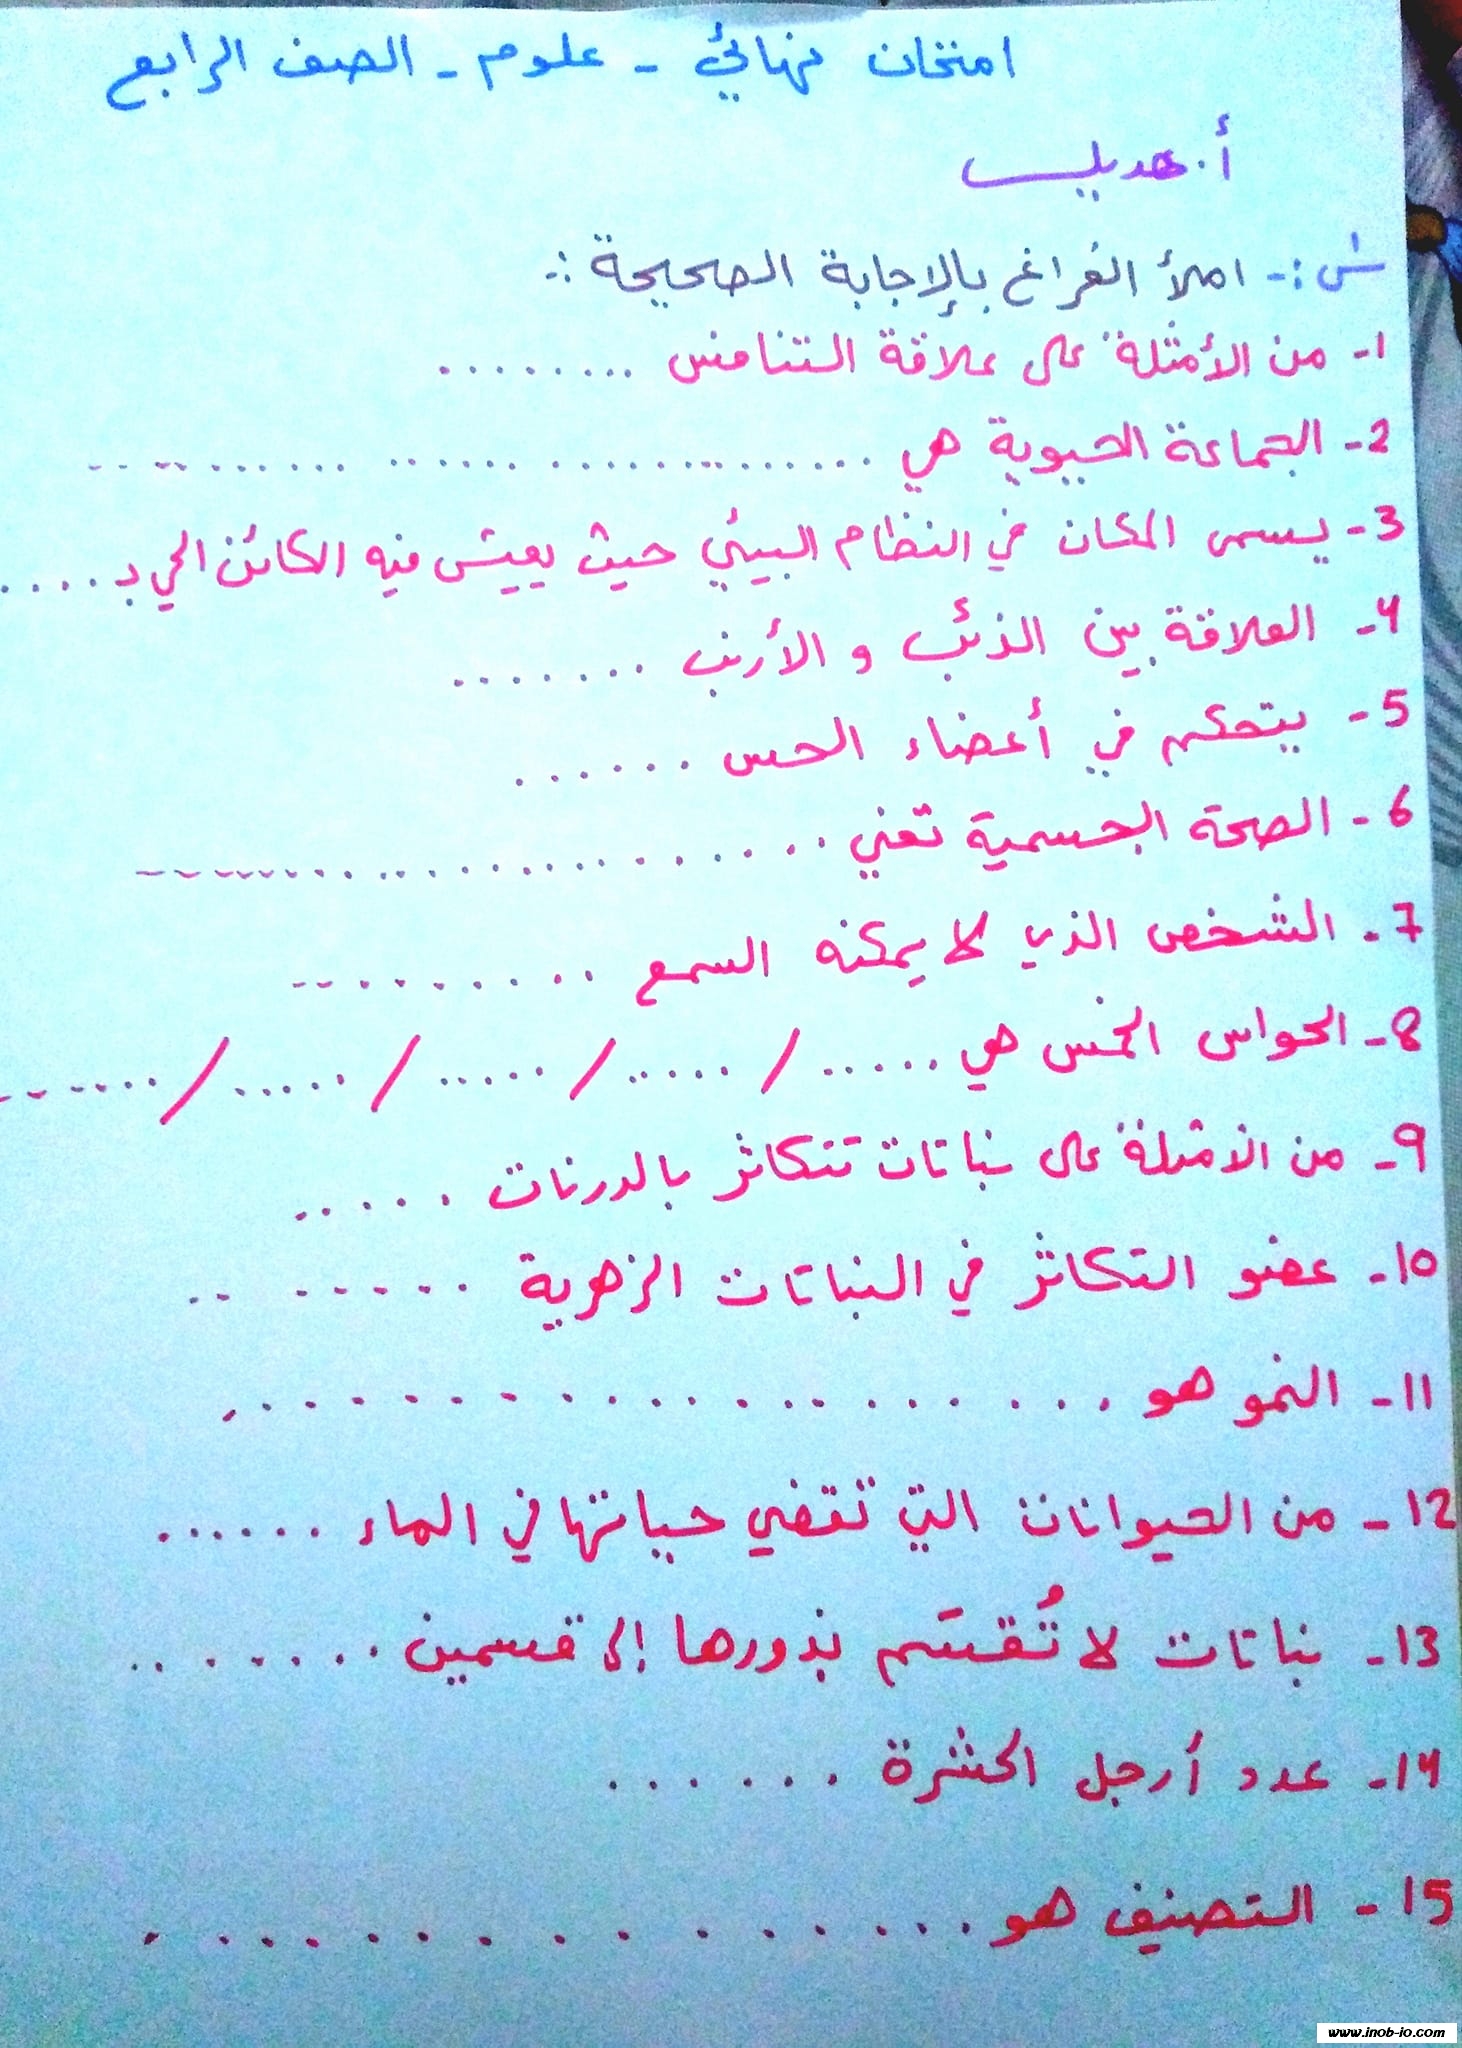 امتحان نهائي - علوم - الصف الرابع
أ. هديل
س:- املأ الفراغ بالإجابة الصحيحة :-
1- من الأمثلة على علاقة التنافس .........
2- الجماعة الحيوية هي ..............................
3- يسمى المكان في النظام البيئي حيث يعيش فيه الكائن الحي بـ .....
4- العلاقة بين الذئب و الأرنب .......
5- يتحكم في أعضاء الحس ......
6- الصحة الجسمية تعني ........................
7- الشخص الذي لا يمكنه السمع ..........
8- الحواس الخمس هي ...../ ...../ ...../ ...../ .......
9- من الأمثلة على نباتات تتكاثر بالدرنات ......
10- عضو التكاثر في النباتات الزهرية ........
11- النمو هو ..................
12- من الحيوانات التي تقضي حياتها في الماء .......
13- نباتات لا تُقسَم بذورها إلى قسمين ........
14- عدد أرجل الحشرة ......
15- التصنيف هو ................
www.inob-io.com